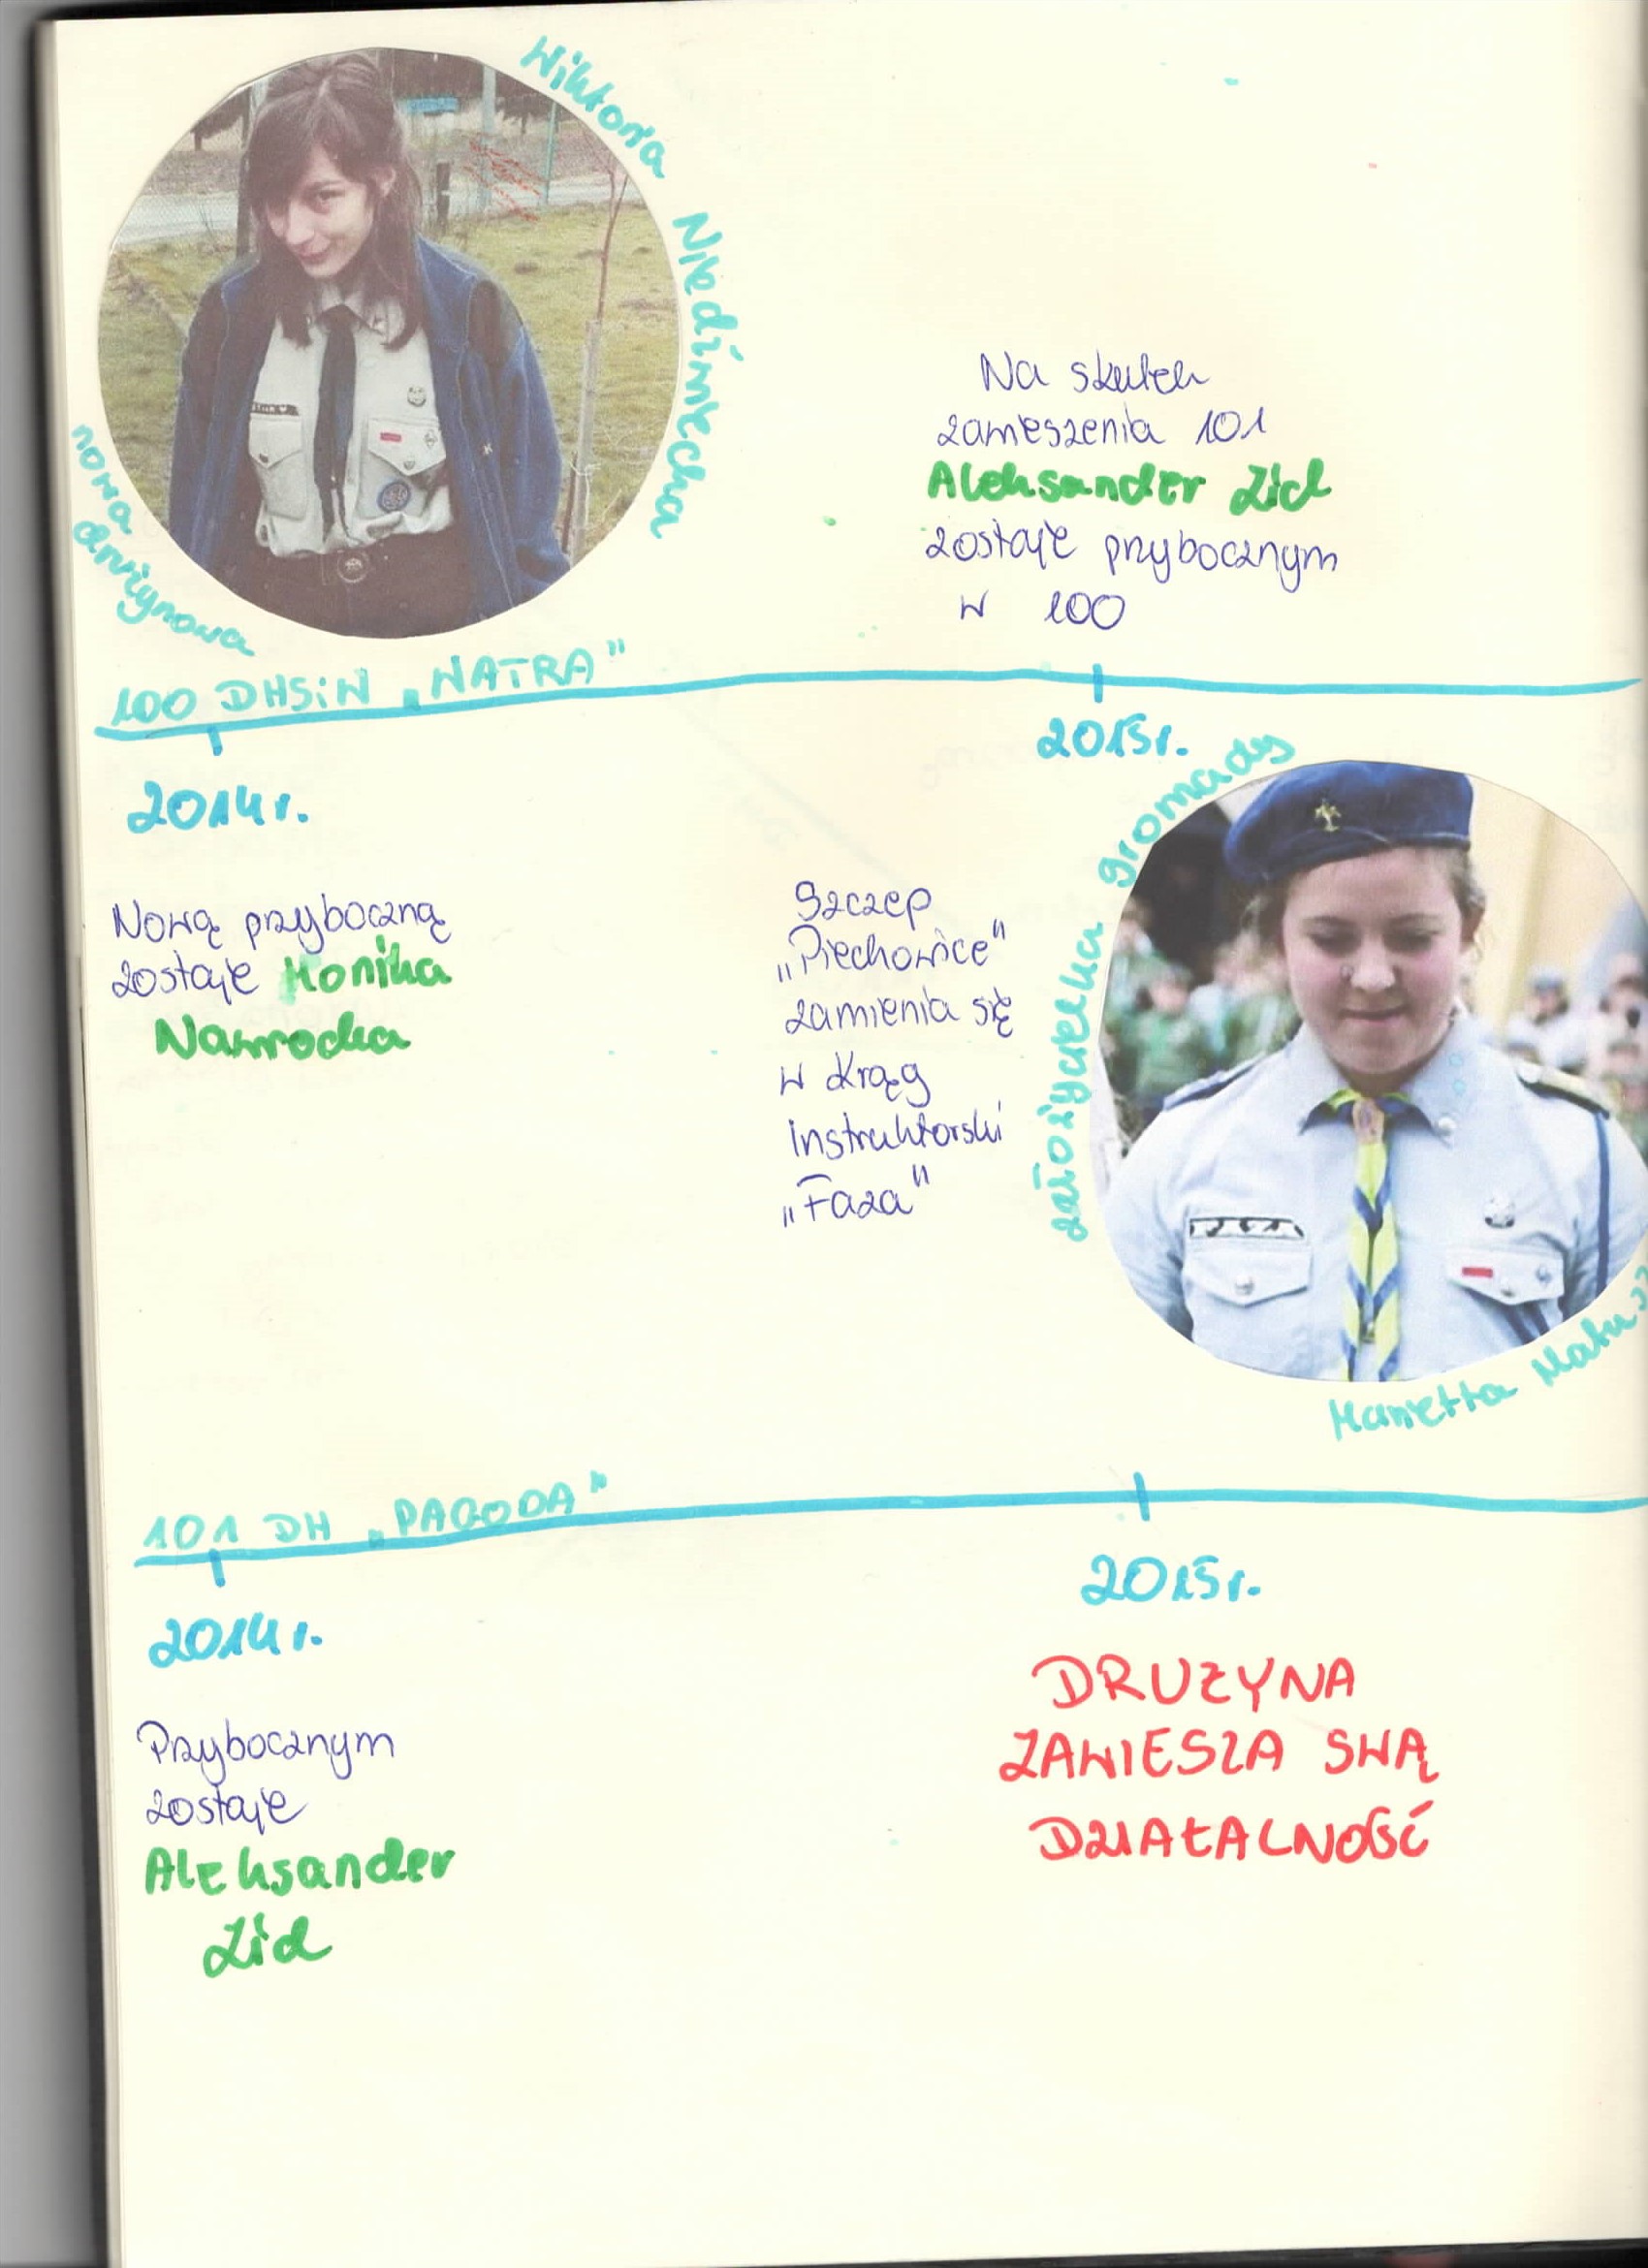 Wiktoria Niedźwiecka
nowa drużynowa
Na skutek
zawieszenia 101
Aleksander Zid
zostaje przybocznym
w 100
100 DHSiW „WATRA"
2014 r.
2015 r.
Nową przyboczną
zostaje Monika
Nawrocka
Szczep
„Piechowice"
zamienia się
w Krąg
instruktorski
„Faza"
założycielka gromady
FAZA
Marietta
101 DH „PAGODA"
2014 r.
2015 r.
Przybocznym
zostaje
Aleksander
Zid
DRUŻYNA
ZAWIESZA SWĄ
DZIAŁALNOŚĆ